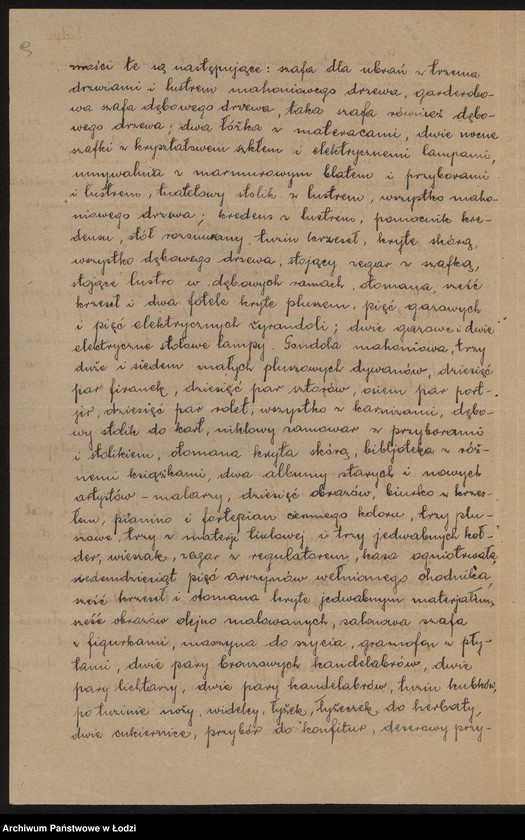 mości te są następujące: szafa dla ubrań z trzema
drzwiami i lustrem mahoniowego drzewa, garderobo-
wa szafa dębowego drzewa, taka szafa również dębo-
wego drzewa; dwa łóżka z materacami, dwie nocne
szafki z kryształowem szkłem i elektrycznemi lampami,
umywalnia z marmurowym blatem i przyborami
i lustrem, tualetowy stolik z lustrem, wszystko maho-
niowego drzewa; kredens z lustrem, pomocnik kre-
densu, stół rozsuwany, tuzin krzeseł, kryte skórą,
wszystko dębowego drzewa, stojący zegar z szafką,
stojące lustro w dębowych ramach, otomana, sześć
krzeseł i dwa fotele kryte pluszem, pięć gazowych
i pięć elektrycznych żyrandoli; dwie gazowe i dwie
elektryczne stołowe lampy. Gondola mahoniowa, trzy
duże i siedem małych pluszowych dywanów, dziesięć
par firanek, dziesięć par sztorów, osiem par port-
jer, dziesięć par rolet, wszystko z karniszami, dębo-
wy stolik do kart, niklowy samowar z przyborami
i stolikiem, otomana kryta skórą, bibljoteka z róż-
nemi książkami, dwa albumy starych i nowych
artystów - malarzy, dziesięć obrazów, biurko z krzes-
łem, pianino i fortepian ciemnego koloru, trzy plu-
szowe, trzy z materji tiulowej i trzy jedwabnych koł-
der, wieszak, zegar z regulatorem, kasa ogniotrwała,
siedemdziesiąt pięć arszynów wełnianego chodnika,
sześć krzeseł i otomana kryte jedwabnym materjałem,
sześć obrazów olejno malowanych, salonowa szafa
z figurkami, maszyna do szycia, gramofon z pły-
tami, dwie pary bronzowych kandelabrów, dwie
pary lichtarzy, dwie pary kandelabrów, tuzin kubków,
po tuzinie noży, widelcy, łyżek, łyżeczek do herbaty,
dwie cukiernice, przybór do konfitur, deserowy przy-
Archiwum Państwowe w Łodzi